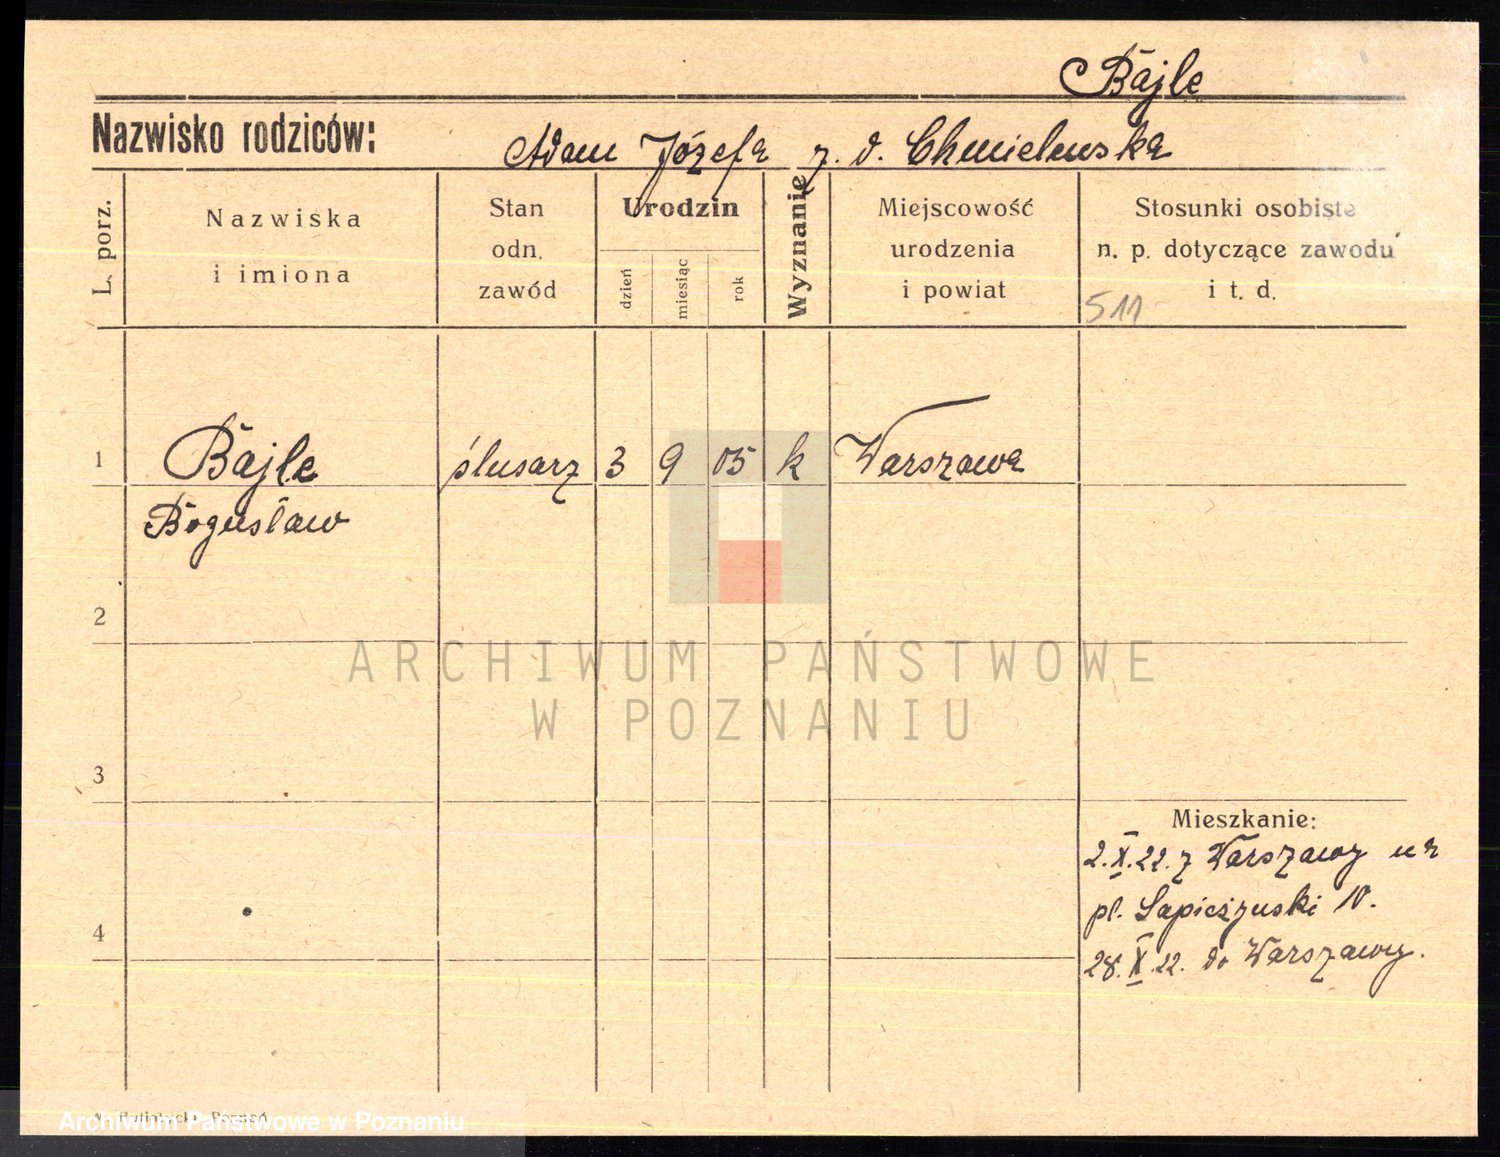 Bajle
Nazwisko rodziców: Adam Józefa z. d. Chmielewska
L. porz.
Nazwiska
i imiona
Stan
odn.
zawód
Urodzin
dzień
miesiąc
rok
Wyznanie
Miejscowość
urodzenia
i powiat
Stosunki osobiste
n. p. dotyczące zawodu
i t. d.
511
1 Bajle ślusarz 3 9 05 k Warszawa
Bogusław
2
ARCHIWUM PAŃSTWOWE
W POZNANIU
3
Mieszkanie:
2.X.22. z Warszawy
pl. Sapieżyński 10.
4
28.X.22. do Warszawy.
Poznań
Archiwum Państwowe w Poznaniu